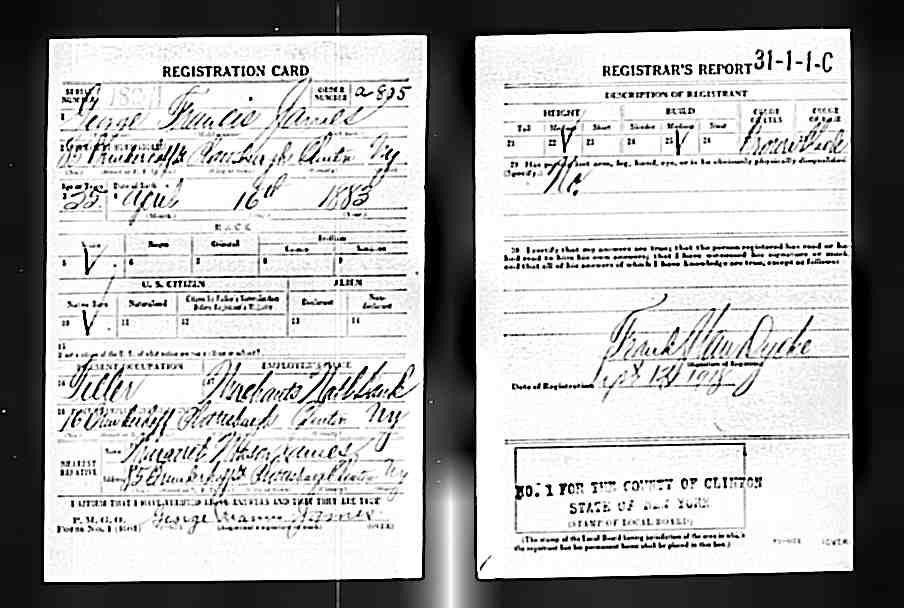 REGISTRATION CARD
SERIAL NUMBER 182 ORDER NUMBER 2835
George Francis James
85 Brinkerhoff St Plattsburgh Clinton Ny
Age in Years Date of Birth
35 April 16th 1883
RACE
White Negro Oriental Indian
5 6 7 8 9
U. S. CITIZEN ALIEN
Native Born Naturalized Citizen by Father's Naturalization Before Registrant's Majority Declarant Non-declarant
10 11 12 13 14
15
PRESENT OCCUPATION EMPLOYER'S NAME
16 Teller 17 Merchants Natl Bank
18 Brinkerhoff Plattsburgh Clinton Ny
NEAREST RELATIVE Name Margaret James
Address 85 Brinkerhoff St Plattsburgh Clinton Ny
I AFFIRM THAT I HAVE VERIFIED ABOVE ANSWERS AND THAT THEY ARE TRUE
P. M. G. O.
Form No. 1 (Red) George Francis James (OVER)
REGISTRAR'S REPORT 31-1-1-C
DESCRIPTION OF REGISTRANT
HEIGHT BUILD COLOR OF EYES COLOR OF HAIR
Tall Medium Short Slender Medium Stout
21 22 23 24 25 26 Brown
29 Has person lost arm, leg, hand, eye, or is he obviously physically disqualified?
(Specify.) No.
30 I certify that my answers are true; that the person registered has read or has
had read to him his own answers; that I have witnessed his signature or mark
and that all of his answers of which I have knowledge are true, except as follows:
Frank Van Dyche
(Signature of Registrar)
Date of Registration Sept 12 1918
NO. 1 FOR THE COUNTY OF CLINTON
STATE OF NEW YORK
(STAMP OF LOCAL BOARD)
(The stamp of the Local Board having jurisdiction of the area in which
the registrant has his permanent home shall be placed in this box.)
(OVER)